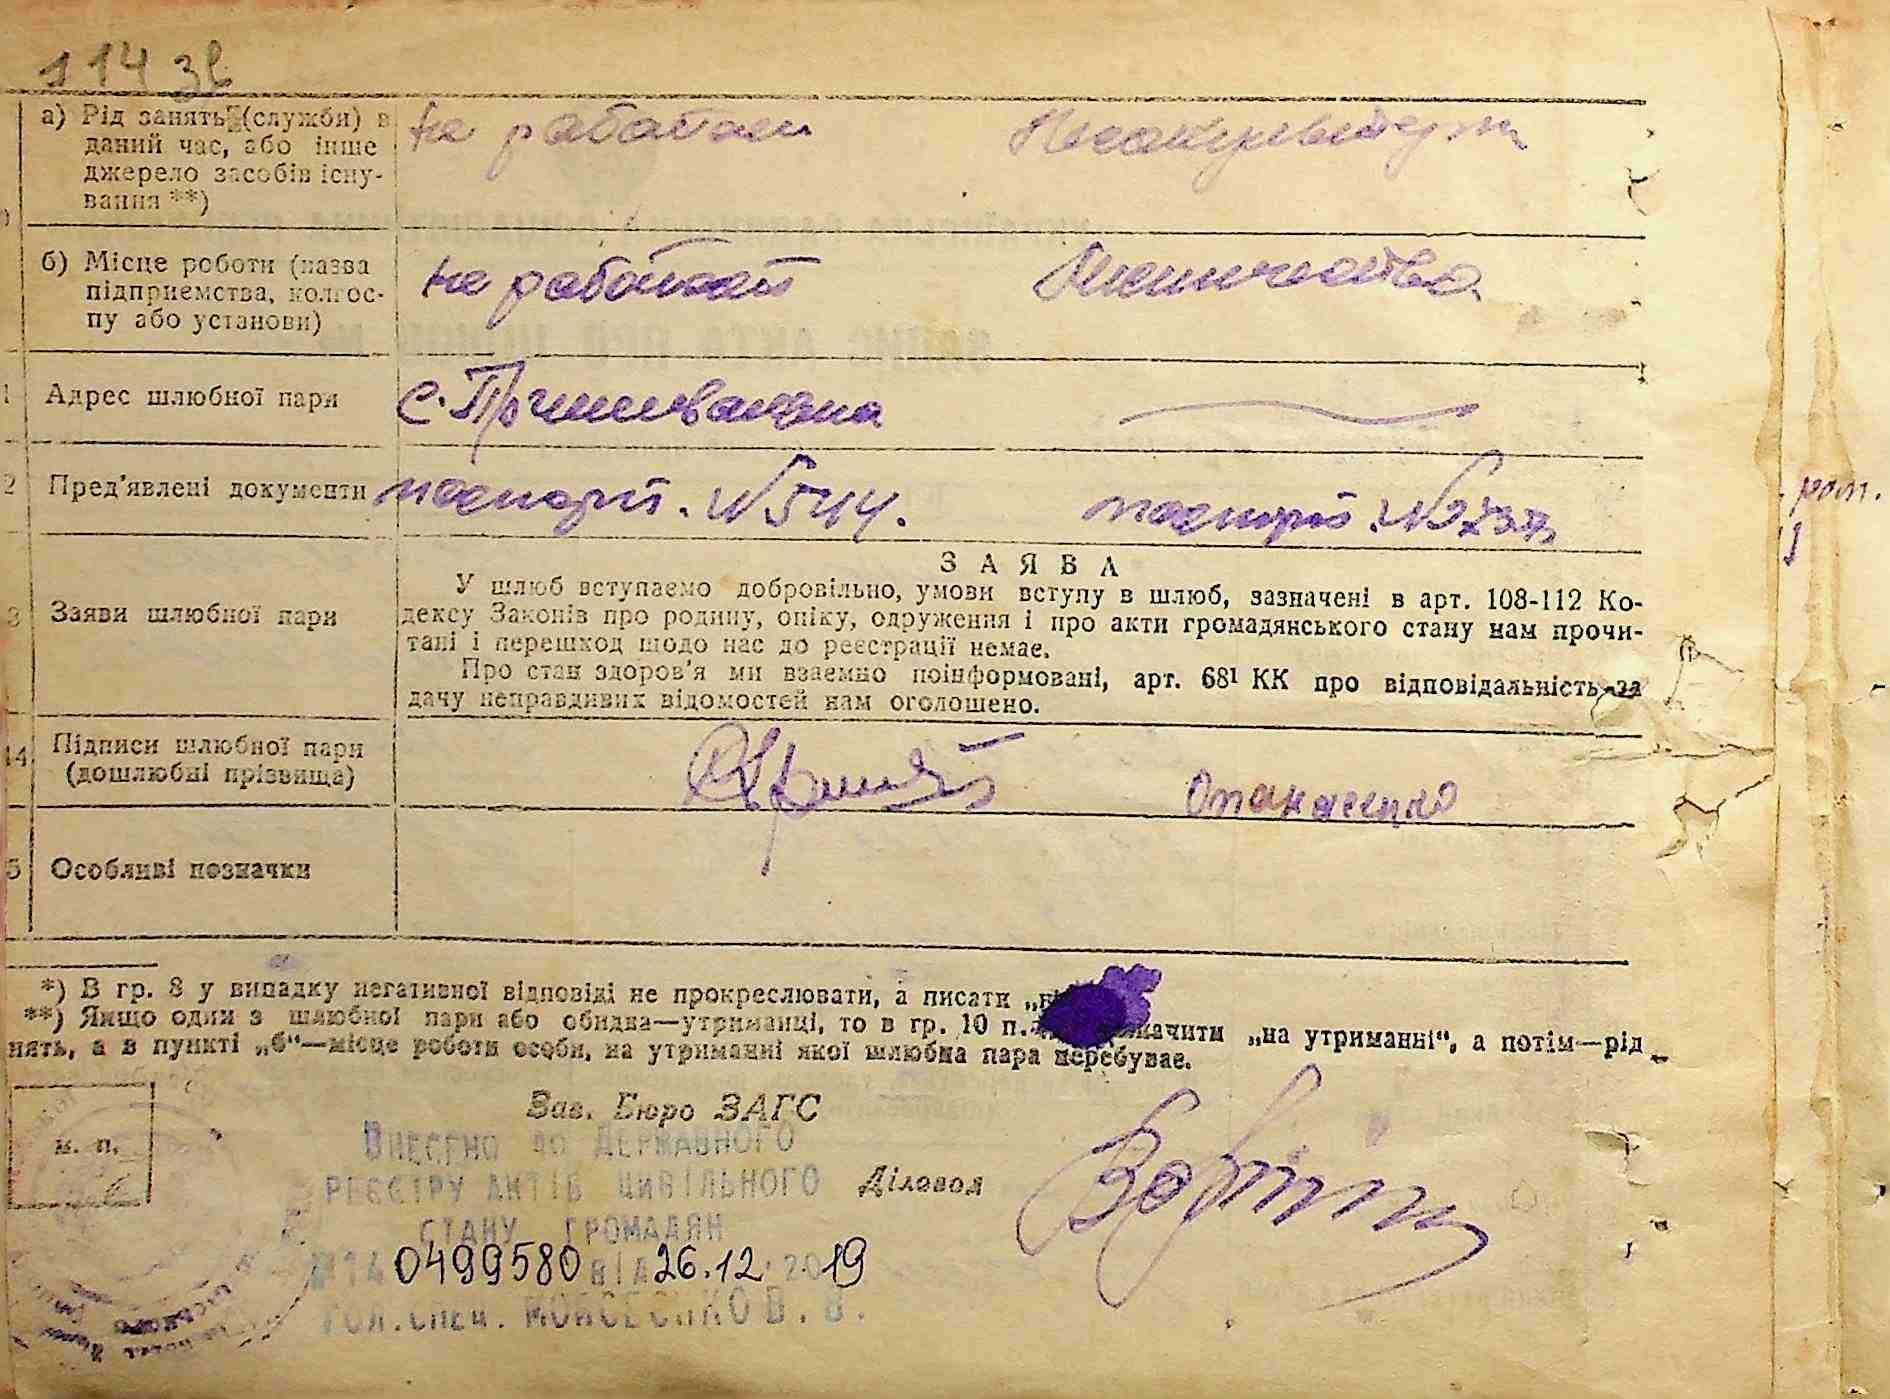 114 зв
а) Рід занять (служби) в
даний час, або інше
джерело засобів існу-
вання **)
не работает
б) Місце роботи (назва
підприємства, колгос-
пу або установи)
не работает
Адрес шлюбної пари
с.
2 Пред'явлені документи
паспорт. № 544.
паспорт. №
рот.
3 Заяви шлюбної пари
ЗАЯВА
У шлюб вступаємо добровільно, умови вступу в шлюб, зазначені в арт. 108-112 Ко-
дексу Законів про родину, опіку, одруження і про акти громадянського стану нам прочи-
тані і перешкод щодо нас до реєстрації немає.
Про стан здоров'я ми взаємно поінформовані, арт. 68¹ КК про відповідальність за
дачу неправдивих відомостей нам оголошено.
14 Підписи шлюбної пари
(дошлюбні прізвища)
Опанасенко
5 Особливі позначки
*) В гр. 8 у випадку негативної відповіді не прокреслювати, а писати
**) Якщо один з шлюбної пари або обидва—утриманці, то в гр. 10 п. „на утриманні“, а потім—рід
нять, а в пункті „б“—місце роботи особи, на утриманні якої шлюбна пара перебуває.
Зав. Бюро ЗАГС
м. п.
Діловод
ВНЕСЕНО ДО ДЕРЖАВНОГО
РЕЄСТРУ АКТІВ ЦИВІЛЬНОГО
СТАНУ ГРОМАДЯН
0499580 від 26.12.2019
ГОЛ.СПЕЦ. МОЙСЕЄНКО В. В.